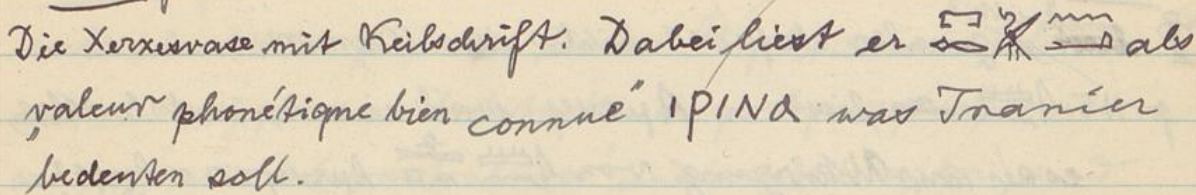 Die Xerxesvase mit Keilschrift. Dabei liest er als
„valeur phonétique bien connue" IPINA was Iranier
bedeuten soll.